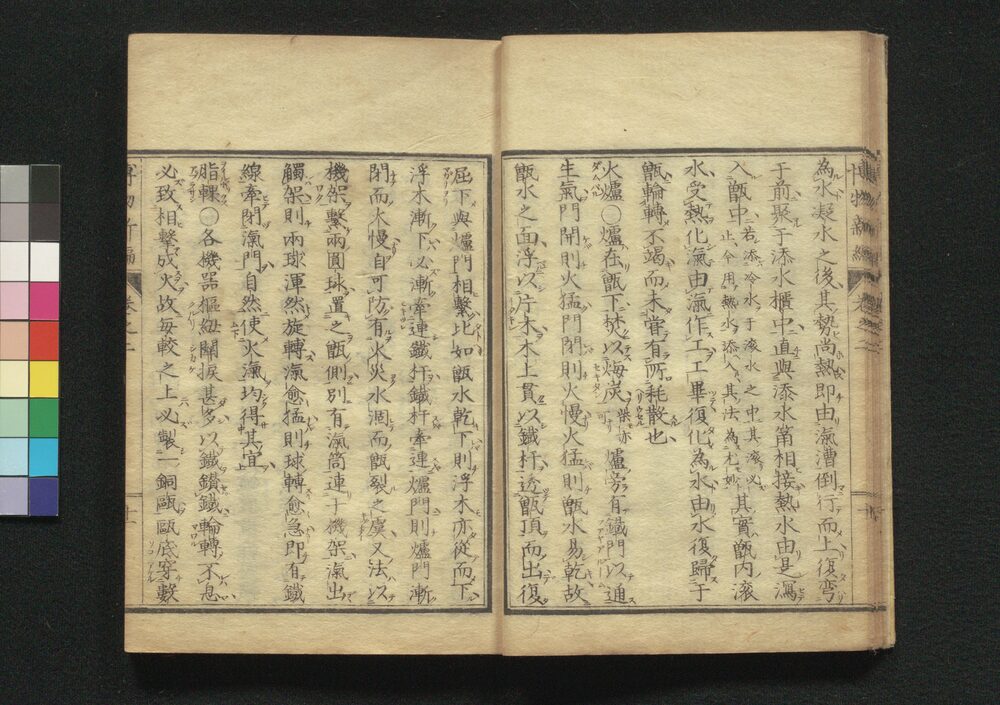 為水凝水之後其勢尚熱即由滊漕倒行而上復弯
于前聚于添水櫃中直與添水筩相接熱水由是瀉
入甑中若添冷水于滚水之中其滚必止今用熱水添入其法為尤妙其實甑内滚
水受熱化滊由滊作工工畢復化為水由水復歸于
甑輪轉不竭而未嘗有所耗散也
火爐〇爐在甑下焚以煤炭柴亦可爐旁有鐵門以通
生氣門開則火猛門閉則火慢火猛則甑水易乾故
甑水之面浮以片木木上貫以鐵杆透甑頂而出復
屈下與爐門相繫比如甑水乾下則浮木亦從而下
浮木漸下必漸牽連鐵杆鐵杆牽連爐門則爐門漸
閉而火慢自可防有火炎水涸而甑裂之虞又法以
機架繫兩圓球置之甑側別有滊筒連于機架滊出
觸架則兩球渾然旋轉滊愈猛則球轉愈急即有鐵
線牽閉滊門自然使火滊均得其宜
脂輠〇各機器樞紐關捩甚多以鐵鑽鐵輪轉不息
必致相擊成火故每較之上必製一銅甌甌底穿數
博物新編
巻之二
十一